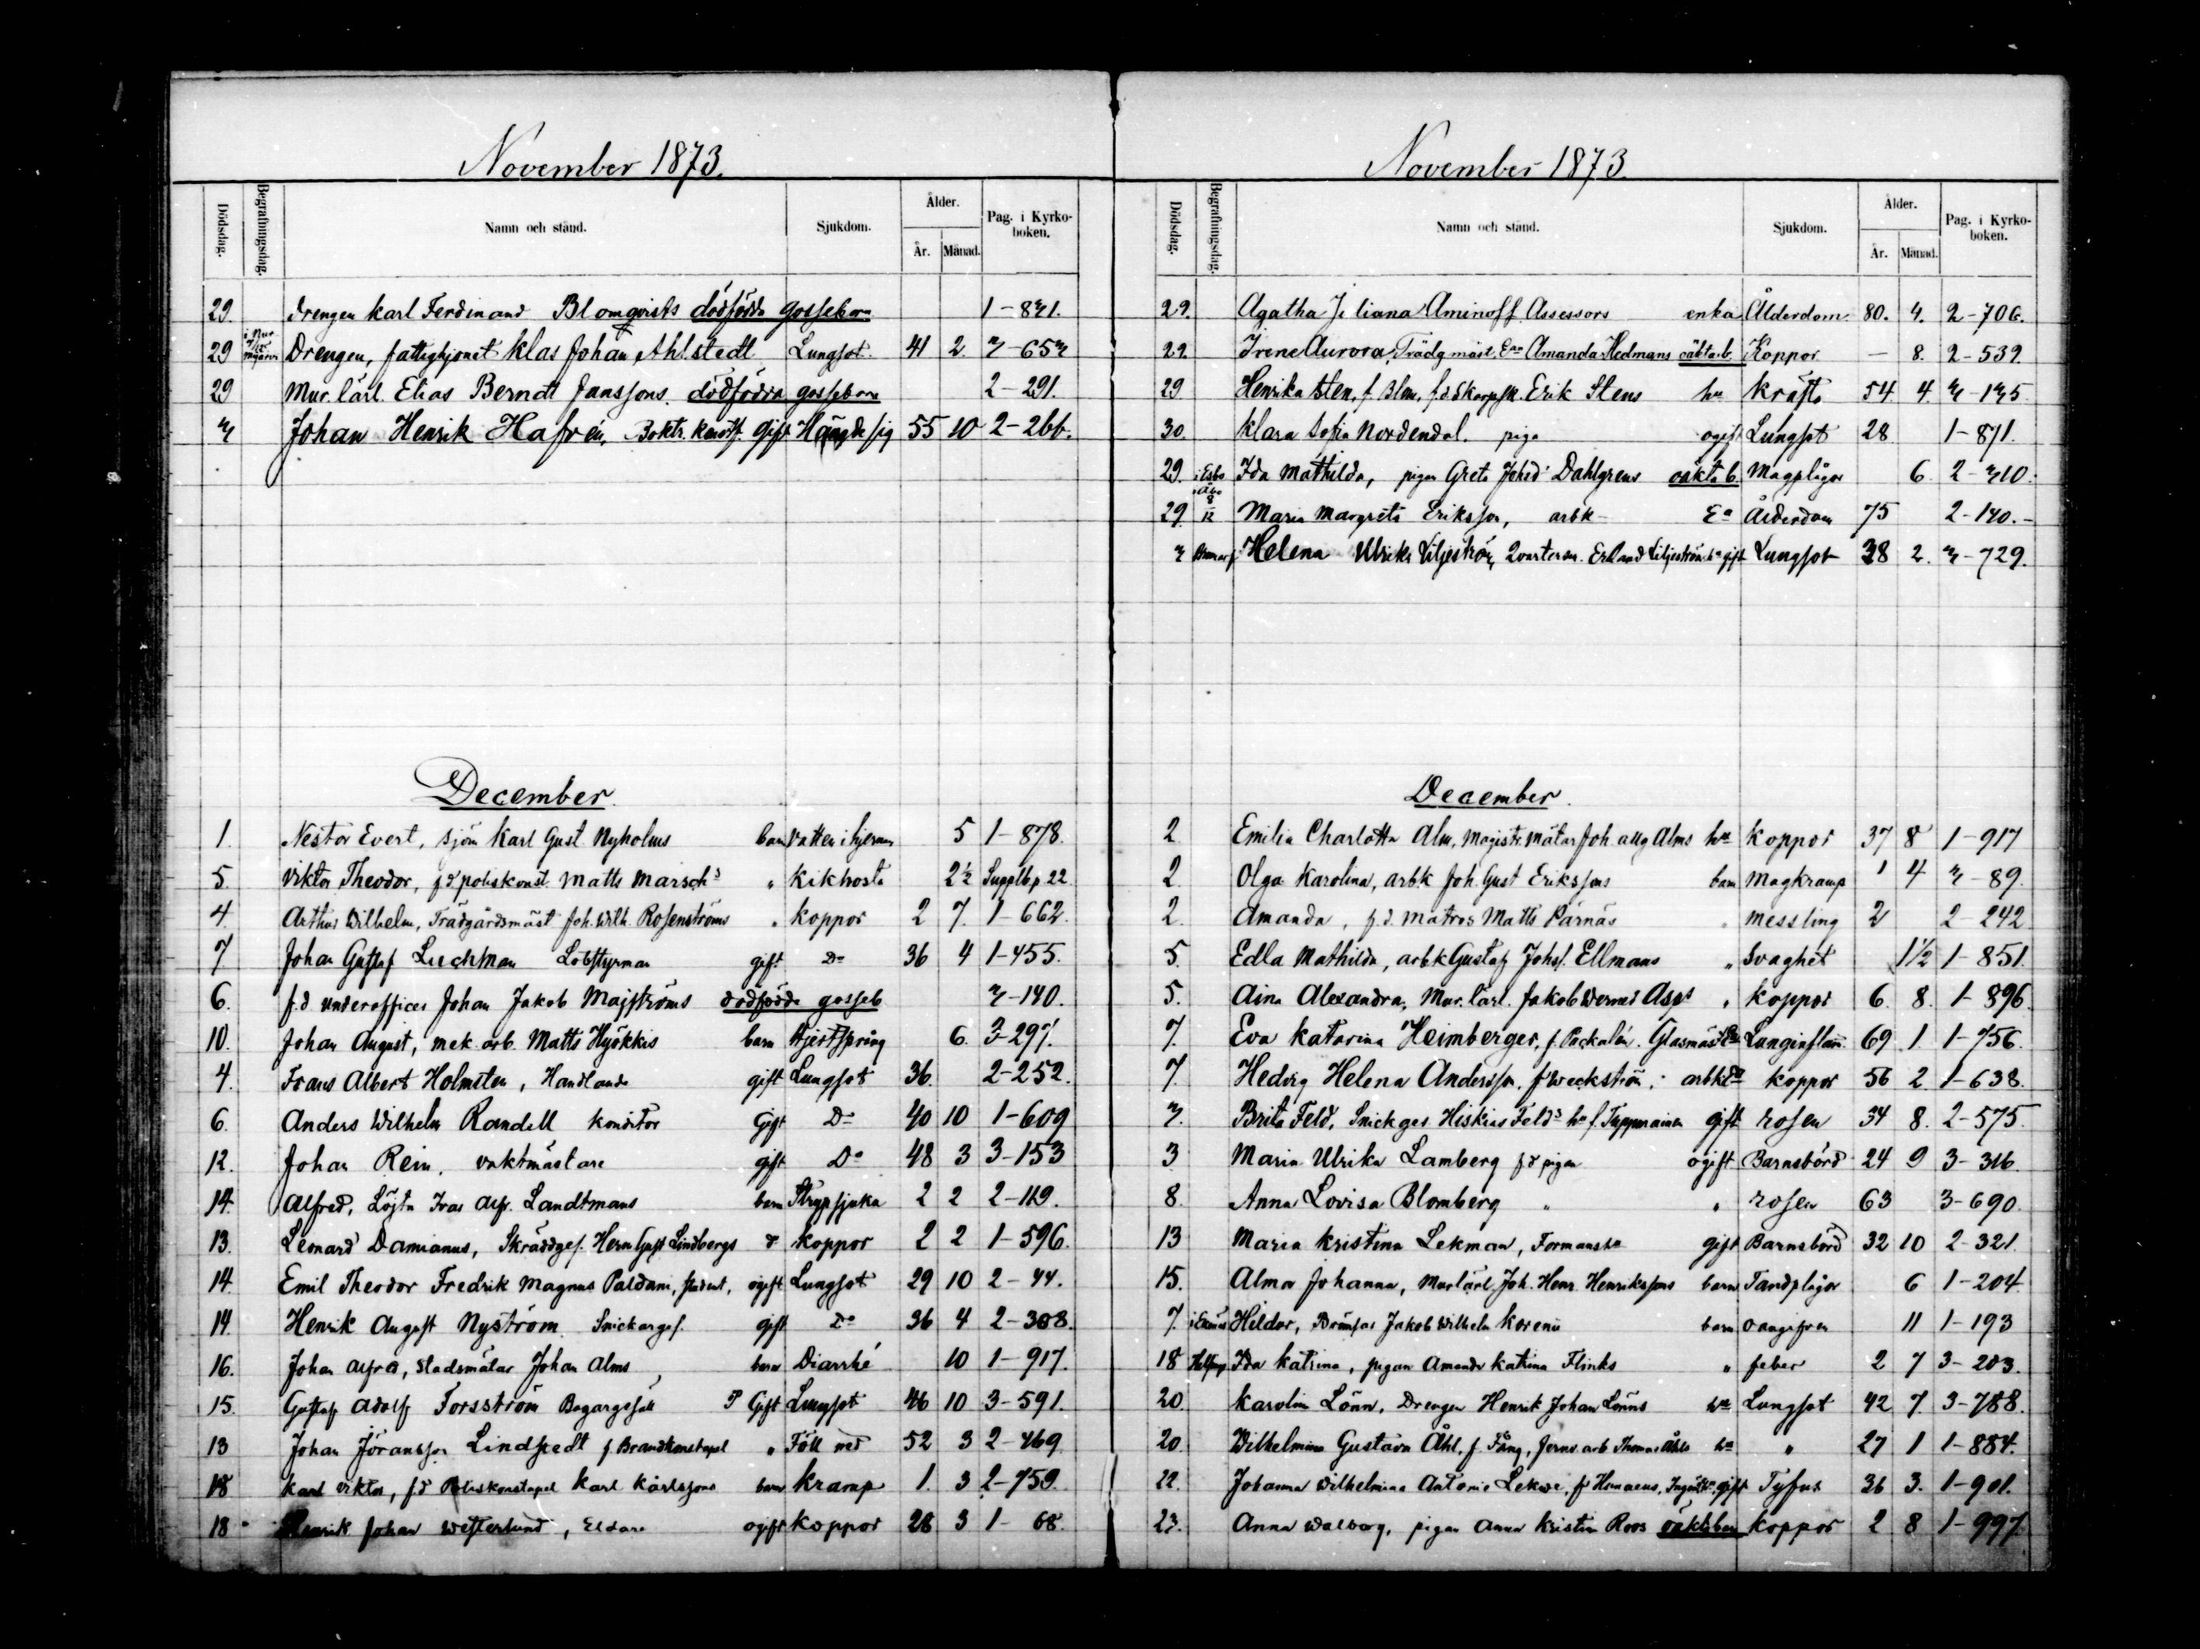 November 1873.
Dödsdag. Begrafningsdag. Namn och stånd. Sjukdom. Ålder. År. Månad. Pag. i Kyrko-boken.
29. Drengen Karl Ferdinand Blomqvists dödfödda gossebarn 1-871.
29 Drengen, fattighjonet Klas Johan Ahlstedt Lungsot. 41 2
29 Mur. lärl. Elias Berndt Janssons dödfödda gossebarn 2-291.
Johan Henrik Hafrén, gift Hängde sig 55 10 2-266.
December.
1. Nestor Evert, sjöm Karl Gust Nyholms barn vatten i hjernan 5 1-878.
5. Viktor Theodor, f.d. poliskonst. Matts Marschs " Kikhosta 2½ Supplb p. 22
4. Arthur Wilhelm, Trädgårdsmäst Joh. Wilh. Rosenströms " Koppor 2 7. 1-662.
7 Johan Gustaf Luchman Lotsstyrman gift Do 36 4 1-455.
6. f.d underofficer Johan Jakob Majströms dödfödda gosseb
10. Johan August, mek. arb. Matts Hyökkis barn Hjertspring 6. 3-297.
4. Frans Albert Holmsten, Handlande gift Lungsot 36 2-252.
6. Anders Wilhelm Randell Konditor Gift Do 40 10 1-609
12. Johan Rein, vaktmästare gift Do 48 3 3-153
14. Alfred, Löjtn Ivar Alfr. Landtmans barn Strypsjuka 2 2 2-119.
13. Leonard Damianus, Skräddges. Herm Gust Lindbergs d Koppor 2 2 1-596.
14. Emil Theodor Fredrik Magnus Paldani, student, ogift Lungsot 29 10 2-44.
14. Henrik August Nyström Snickarges. gift Do 36 4 2-308.
16. Johan Alfred, Stadsmälar Johan Alms barn Diarrhé 10 1-917.
15. Gustaf Adolf Forsström Gift Lungsot 46 10 3-591.
13 Johan Jöransson Lindstedt f Brandkonstapel " Föll ned 52 3 2-469
18 Karl Viktor, f.d Poliskonstapel Karl Karlssons barn Kramp 1. 3 2-759.
18 Henrik Johan Westerlund, Eldare ogift Koppor 28 3 1-68.
November 1873.
Dödsdag. Begrafningsdag. Namn och stånd. Sjukdom. Ålder. År. Månad. Pag. i Kyrko-boken.
29. Agatha Juliana Aminoff Assessors enka Ålderdom. 80. 4. 2-706.
29. Irene Aurora, Trädg mäst. Amanda Hedmans oäkta b. Koppor - 8. 2-539.
29 Henrika Sten, f. Blm, f.d. Skarpsk. Erik Stens hu Kräfta 54 4.
30. Klara Sofia Nordendal. piga ogift Lungsot 28 1-871.
29. i Esbo Ida Mathilda, pigan Greta Johsd Dahlgrens oäkta b. Magplågor 6.
29. i Åbo 8/12 Maria Margreta Eriksson, arbk Ea Ålderdom 75 2-140.-
Helena Ulrika Liljeström, Erland Liljeströms hu gift Lungsot 38 2.
December.
2. Emilia Charlotta Alm, Magistr. mälar Joh. Aug Alms hu Koppor 37 8 1-917
2. Olga Karolina, arbk Joh. Gust Erikssons barn Magkramp 1 4
2. Amanda, f.d. matros Matts Pärnäs " Messling 2 2-242
5. Edla Mathilda, arbk Gustaf Johss. Ellmans " Svaghet 1½ 1-851.
5. Aina Alexandra, Mur. lärl. Jakob Werner Asps " Koppor 6. 8. 1-896.
7. Eva Katarina Heimberger, f. Packalén. Glasmäst Ea Lunginflam. 69 1. 1-756.
7. Hedvig Helena Andersson, f. Weckström, arbk Koppor 56 2. 1-638.
Brita Feld, Snickges. Hiskias Felds hu f. Tuppurainen gift rosen 34 8. 2-575.
3 Maria Ulrika Lamberg f d pigan ogift Barnsbörd 24 9 3-316
8. Anna Lovisa Blomberg " " rosen 63 3-690.
13 Maria Kristina Lekman, Formanska gift Barnsbörd 32 10 2-321
15. Alma Johanna, Murlärl. Joh. Henr. Henrikssons barn Tandplågor 6 1-204.
7. i Ekenäs Hildor, Jakob Wilhelm barn oangifven 11 1-193
18 Helsing Ida Katrina, pigan Amanda Katrina Flinks " feber 2 7 3-203.
20. Karolin Lönn, Drengen Henrik Johan Lönns hu Lungsot 42 7. 3-788.
20. Wilhelmina Gustava Åhl, f. Fång, Jernv. arb Thomas Åhls hu " 27 1 1-884.
22. Johanna Wilhelmina Antonie Lekve, gift Tyfus 36 3. 1-901.
23. Anna Walborg, pigan Anna Kristin Roos oäkta barn Koppor 2 8 1-997.